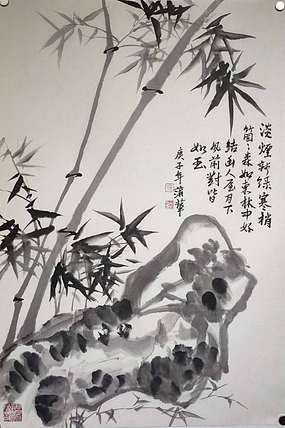 淡煙新綠寒梢
箇〻森如束林中好
結幽人屋月下
風前對皆
如玉
庚子年蒲華